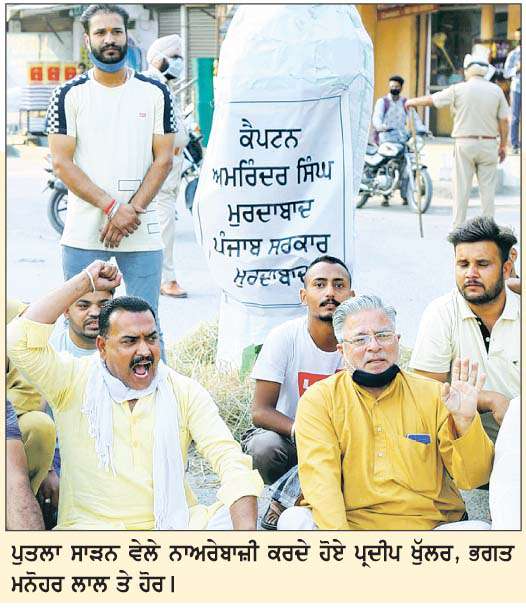 ਕੈਪਟਨ
ਅਮਰਿੰਦਰ ਸਿੰਘ
ਮੁਰਦਾਬਾਦ
ਪੰਜਾਬ ਸਰਕਾਰ
ਮੁਰਦਾਬਾਦ
ਪੁਤਲਾ ਸਾੜਨ ਵੇਲੇ ਨਾਅਰੇਬਾਜ਼ੀ ਕਰਦੇ ਹੋਏ ਪ੍ਰਦੀਪ ਖੁੱਲਰ, ਭਗਤ
ਮਨੋਹਰ ਲਾਲ ਤੇ ਹੋਰ।